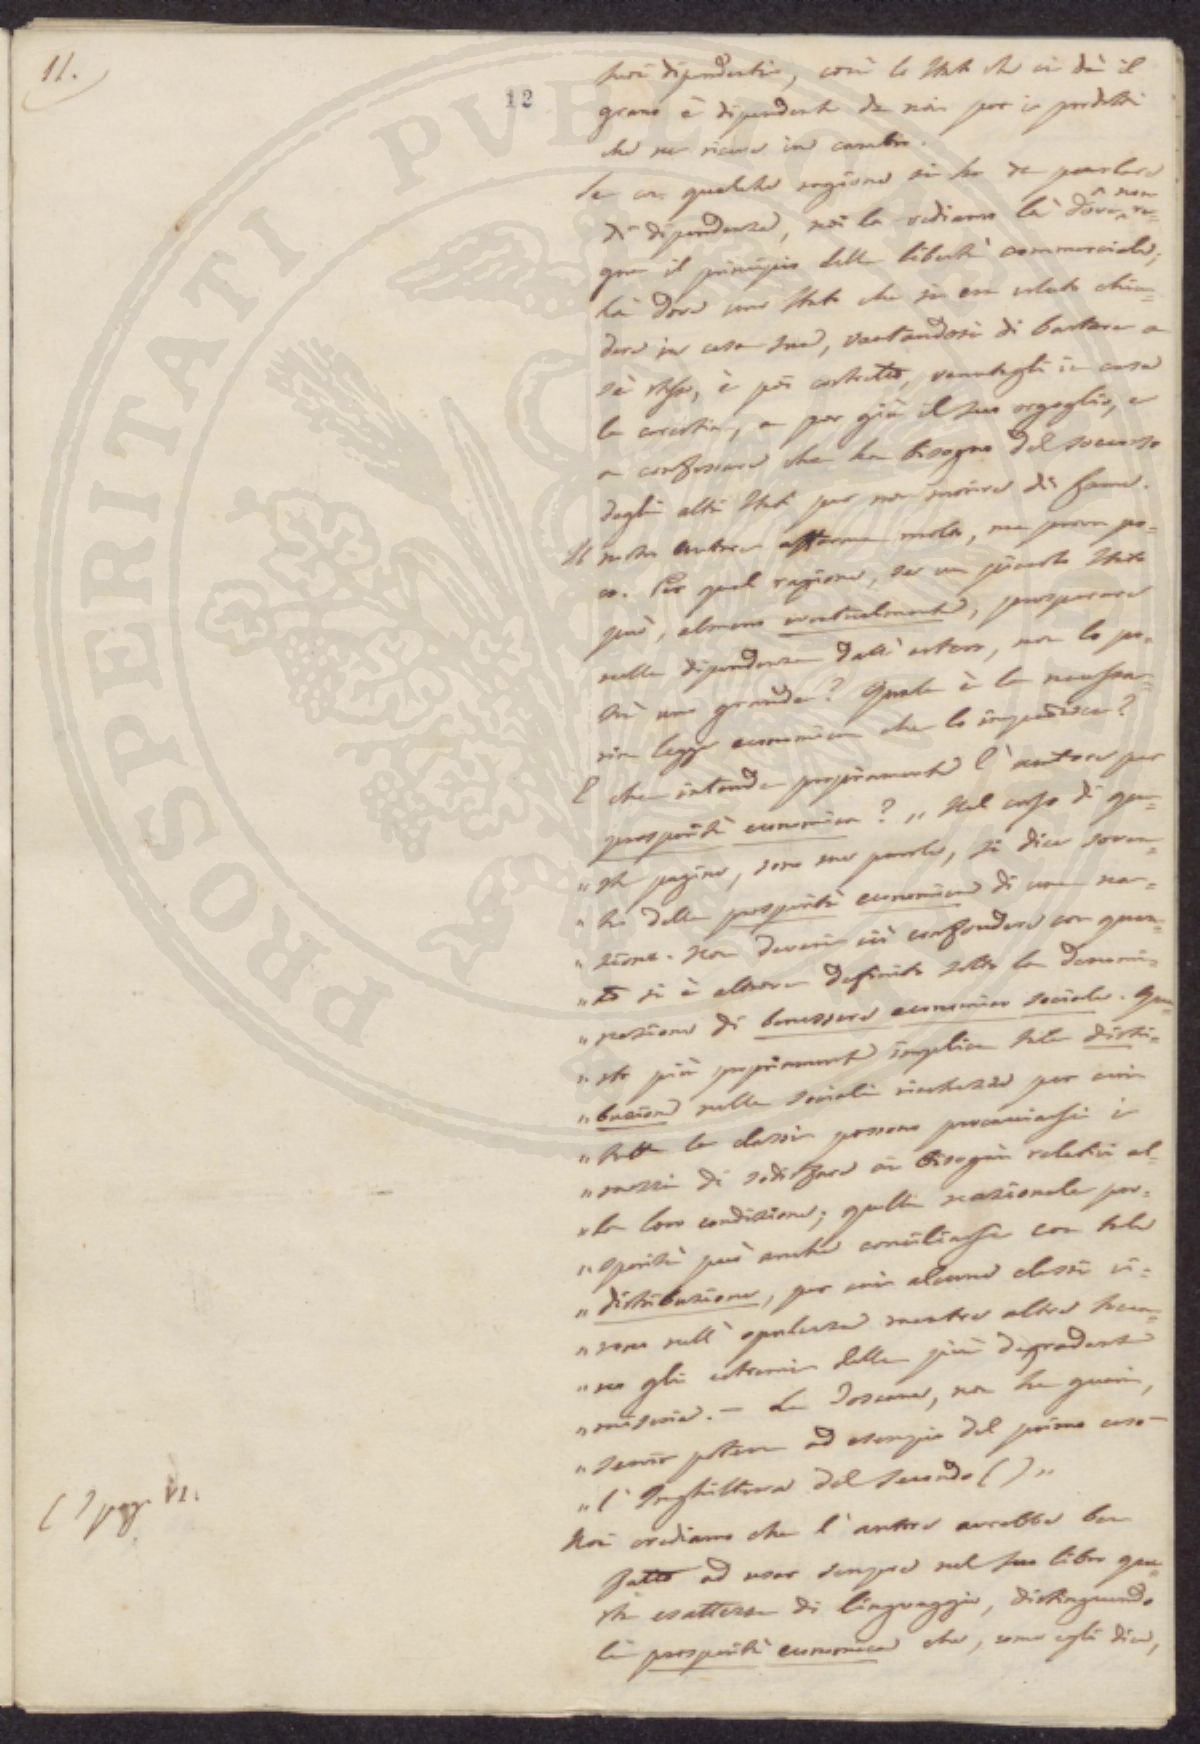 11.
12
suoi dipendenti, così lo Stato che ci dà il
grano è dipendente da noi per i prodotti
che ne riceve in cambio.
Se con qualche ragione si ha da parlare
di dipendenza, noi la vediamo là dove non re=
gna il principio della libertà commerciale;
là dove uno Stato che si era voluto chiu=
dere in casa sua, vantandosi di bastare a
sè stesso, è poi costretto, venutagli in casa
la carestia, a por giù il suo orgoglio, e
a confessare che ha bisogno del soccorso
degli altri Stati per non morire di fame.
Il nostro autore afferma molto, ma prova po=
co. Per qual ragione, se un piccolo Stato
può, almeno eventualmente, prosperare
nella dipendenza dall'estero, non lo po=
trà uno grande? Quale è la necessa=
ria legge economica che lo impedisce?
E che intende propriamente l'autore per
prosperità economica? „ Nel corso di que=
„ ste pagine, sono sue parole, si dice soven=
„ te della prosperità economica di una na=
„ zione. Non devesi ciò confondere con quan=
„ to si è altrove definito sotto la denomi=
„ nazione di benessere economico sociale. Que=
„ sto più propriamente implica tale distri=
„ buzione nelle sociali ricchezze per cui
„ tutte le classi possono procacciarsi i
„ mezzi di sodisfare ai bisogni relativi al=
„ la loro condizione; quella nazionale pro=
„ sperità può anche conciliarsi con tale
„ distribuzione, per cui alcune classi vi=
„ vono nell'opulenza mentre altre tocca=
„ no gli estremi della più degradante
„ miseria. — La Toscana, non ha guari,
„ servir poteva ad esempio del primo caso —
„ l'Inghilterra del secondo ( ) „
( ) pag. VI.
Noi crediamo che l'autore avrebbe ben
fatto ad usar sempre nel suo libro que=
sta esattezza di linguaggio, distinguendo
la prosperità economica che, come egli dice,
PROSPERITATI PVBLICAE